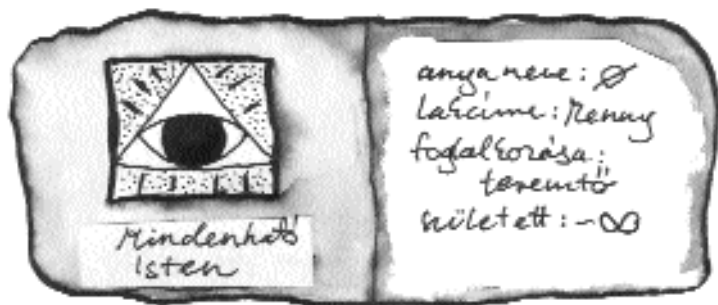 Mindenható
Isten
anya neve: ∅
lakcíme: Menny
foglalkozása:
teremtő
született: -∞